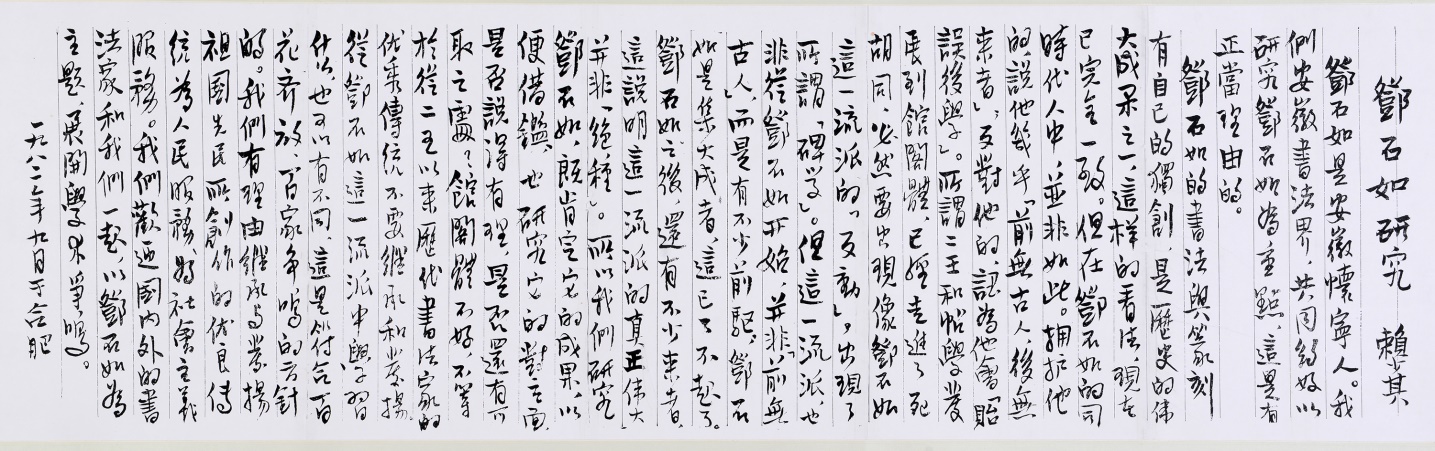 鄧石如研究 賴少其
鄧石如是安徽懷寧人。我
們安徽書法界，共同約好以
研究鄧石如為重點，這是有
正當理由的。
鄧石如的書法與篆刻
有自己的獨創，是歷史的偉
大成果之一，這样的看法，現在
已完全一致。但在鄧石如的同
時代人中，並非如此。拥护他
的說他幾乎「前無古人，後無
來者」，反對他的，認為他會「貽
誤後學」。所謂二王和帖學發
展到館閣體，已經走進了死
胡同，必然要出現像鄧石如
這一流派的「反動」，出現了
所謂「碑学」。但這一流派，也
非從鄧石如开始，并非「前無
古人」，而是有不少前駆，鄧石
如是集大成者，這已了不起了。
鄧石如之後，還有不少來者，
這說明這一流派的真正偉大
并非「絕種」。所以我們研究
鄧石如，既肯定它的成果，以
便借鑑，也研究它的對立面
是否說得有理，是否還有可
取之處？館閣體不好，不等
於從二王以來歷代書法家的
优秀傳統不要繼承和發揚。
從鄧石如這一流派中學習
什么也可以有不同，這是符合百
花齐放、百家争鳴的方針
的。我們有理由繼承与發揚
祖國先民所創作的优良传
統為人民服務，為社會主義
服務。我們歡迎國内外的書
法家和我們一起，以鄧石如為
主題，展開學术爭鳴。
一九八二年九月于合肥